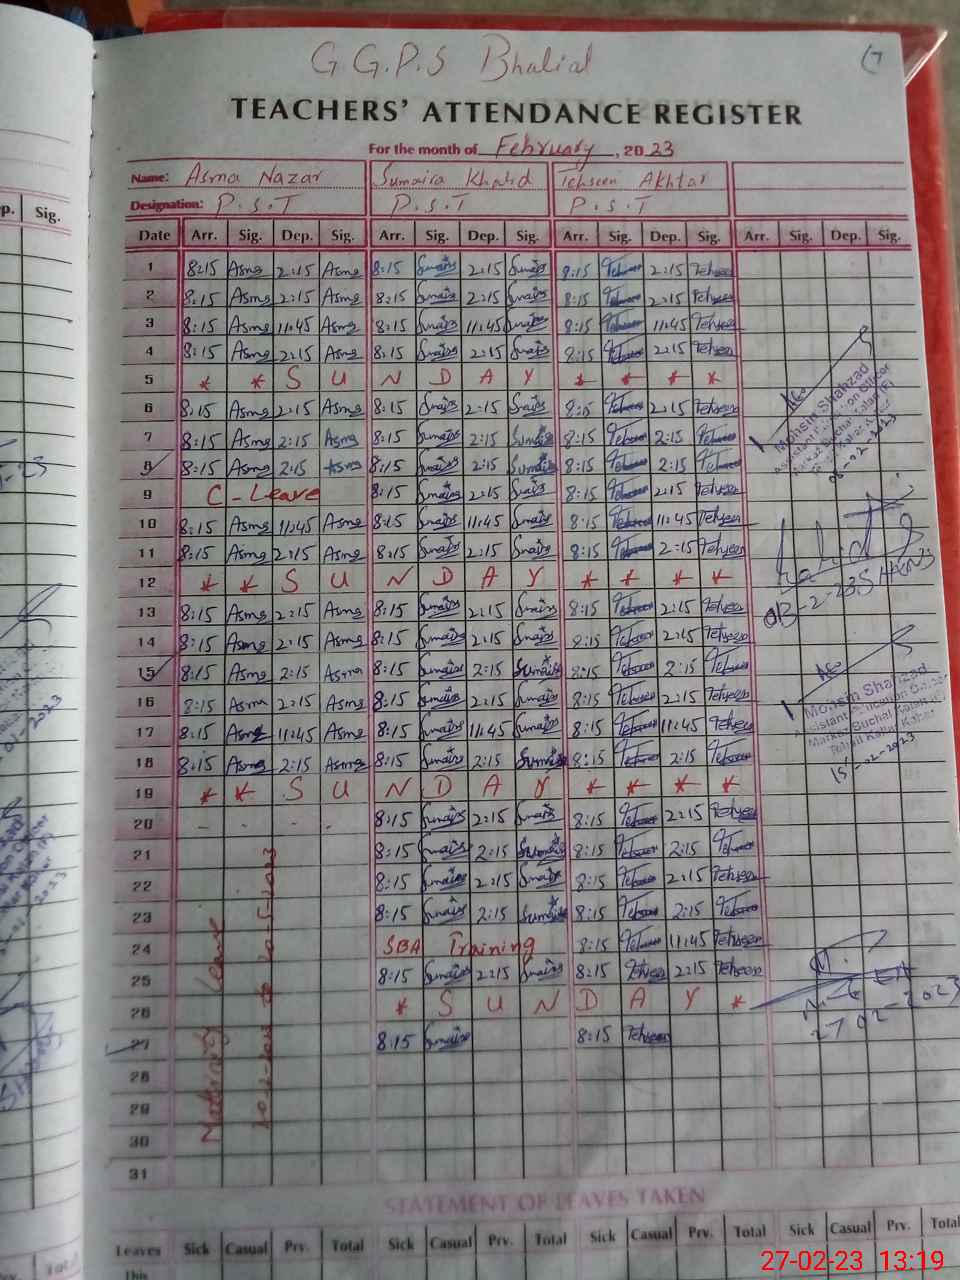 G.G.P.S Bhalial
TEACHERS' ATTENDANCE REGISTER
For the month of February, 2023
Name: Asma Nazar Sumaira Khalid Tehseen Akhtar
Designation: P.S.T P.S.T P.S.T
Date Arr. Sig. Dep. Sig. Arr. Sig. Dep. Sig. Arr. Sig. Dep. Sig. Arr. Sig. Dep. Sig.
1 8:15 Asma 2:15 Asma 8:15 Sumaira 2:15 Sumaira 8:15 Tehseen 2:15 Tehseen
2 8:15 Asma 2:15 Asma 8:15 Sumaira 2:15 Sumaira 8:15 Tehseen 2:15 Tehseen
3 8:15 Asma 11:45 Asma 8:15 Sumaira 11:45 Sumaira 8:15 Tehseen 11:45 Tehseen
4 8:15 Asma 2:15 Asma 8:15 Sumaira 2:15 Sumaira 8:15 Tehseen 2:15 Tehseen
5 * * S U N D A Y * * * *
6 8:15 Asma 2:15 Asma 8:15 Sumaira 2:15 Sumaira 8:15 Tehseen 2:15 Tehseen
7 8:15 Asma 2:15 Asma 8:15 Sumaira 2:15 Sumaira 8:15 Tehseen 2:15 Tehseen
8 8:15 Asma 2:15 Asma 8:15 Sumaira 2:15 Sumaira 8:15 Tehseen 2:15 Tehseen
9 C-Leave 8:15 Sumaira 2:15 Sumaira 8:15 Tehseen 2:15 Tehseen
10 8:15 Asma 11:45 Asma 8:15 Sumaira 11:45 Sumaira 8:15 Tehseen 11:45 Tehseen
11 8:15 Asma 2:15 Asma 8:15 Sumaira 2:15 Sumaira 8:15 Tehseen 2:15 Tehseen
12 * * S U N D A Y * * * *
13 8:15 Asma 2:15 Asma 8:15 Sumaira 2:15 Sumaira 8:15 Tehseen 2:15 Tehseen
14 8:15 Asma 2:15 Asma 8:15 Sumaira 2:15 Sumaira 8:15 Tehseen 2:15 Tehseen
15 8:15 Asma 2:15 Asma 8:15 Sumaira 2:15 Sumaira 8:15 Tehseen 2:15 Tehseen
16 8:15 Asma 2:15 Asma 8:15 Sumaira 2:15 Sumaira 8:15 Tehseen 2:15 Tehseen
17 8:15 Asma 11:45 Asma 8:15 Sumaira 11:45 Sumaira 8:15 Tehseen 11:45 Tehseen
18 8:15 Asma 2:15 Asma 8:15 Sumaira 2:15 Sumaira 8:15 Tehseen 2:15 Tehseen
19 * * S U N D A Y * * * *
20 8:15 Sumaira 2:15 Sumaira 8:15 Tehseen 2:15 Tehseen
21 8:15 Sumaira 2:15 Sumaira 8:15 Tehseen 2:15 Tehseen
22 8:15 Sumaira 2:15 Sumaira 8:15 Tehseen 2:15 Tehseen
23 8:15 Sumaira 2:15 Sumaira 8:15 Tehseen 2:15 Tehseen
24 SBA Training 8:15 Tehseen 11:45 Tehseen
25 8:15 Sumaira 2:15 Sumaira 8:15 Tehseen 2:15 Tehseen
26 * S U N D A Y *
27 8:15 Sumaira 8:15 Tehseen
28
29
30
31
Maternity Leave
20-2-2023 to 20-5-2023
Mohsin Shahzad
Assistant Education Officer
08-02-2023
Mohsin Shahzad
Assistant Education Officer
15-02-2023
27-02-2023
STATEMENT OF LEAVES TAKEN
Leaves Sick Casual Prv. Total Sick Casual Prv. Total Sick Casual Prv. Total Sick Casual Prv. Total
This
27-02-23 13:19
Dep. Sig.